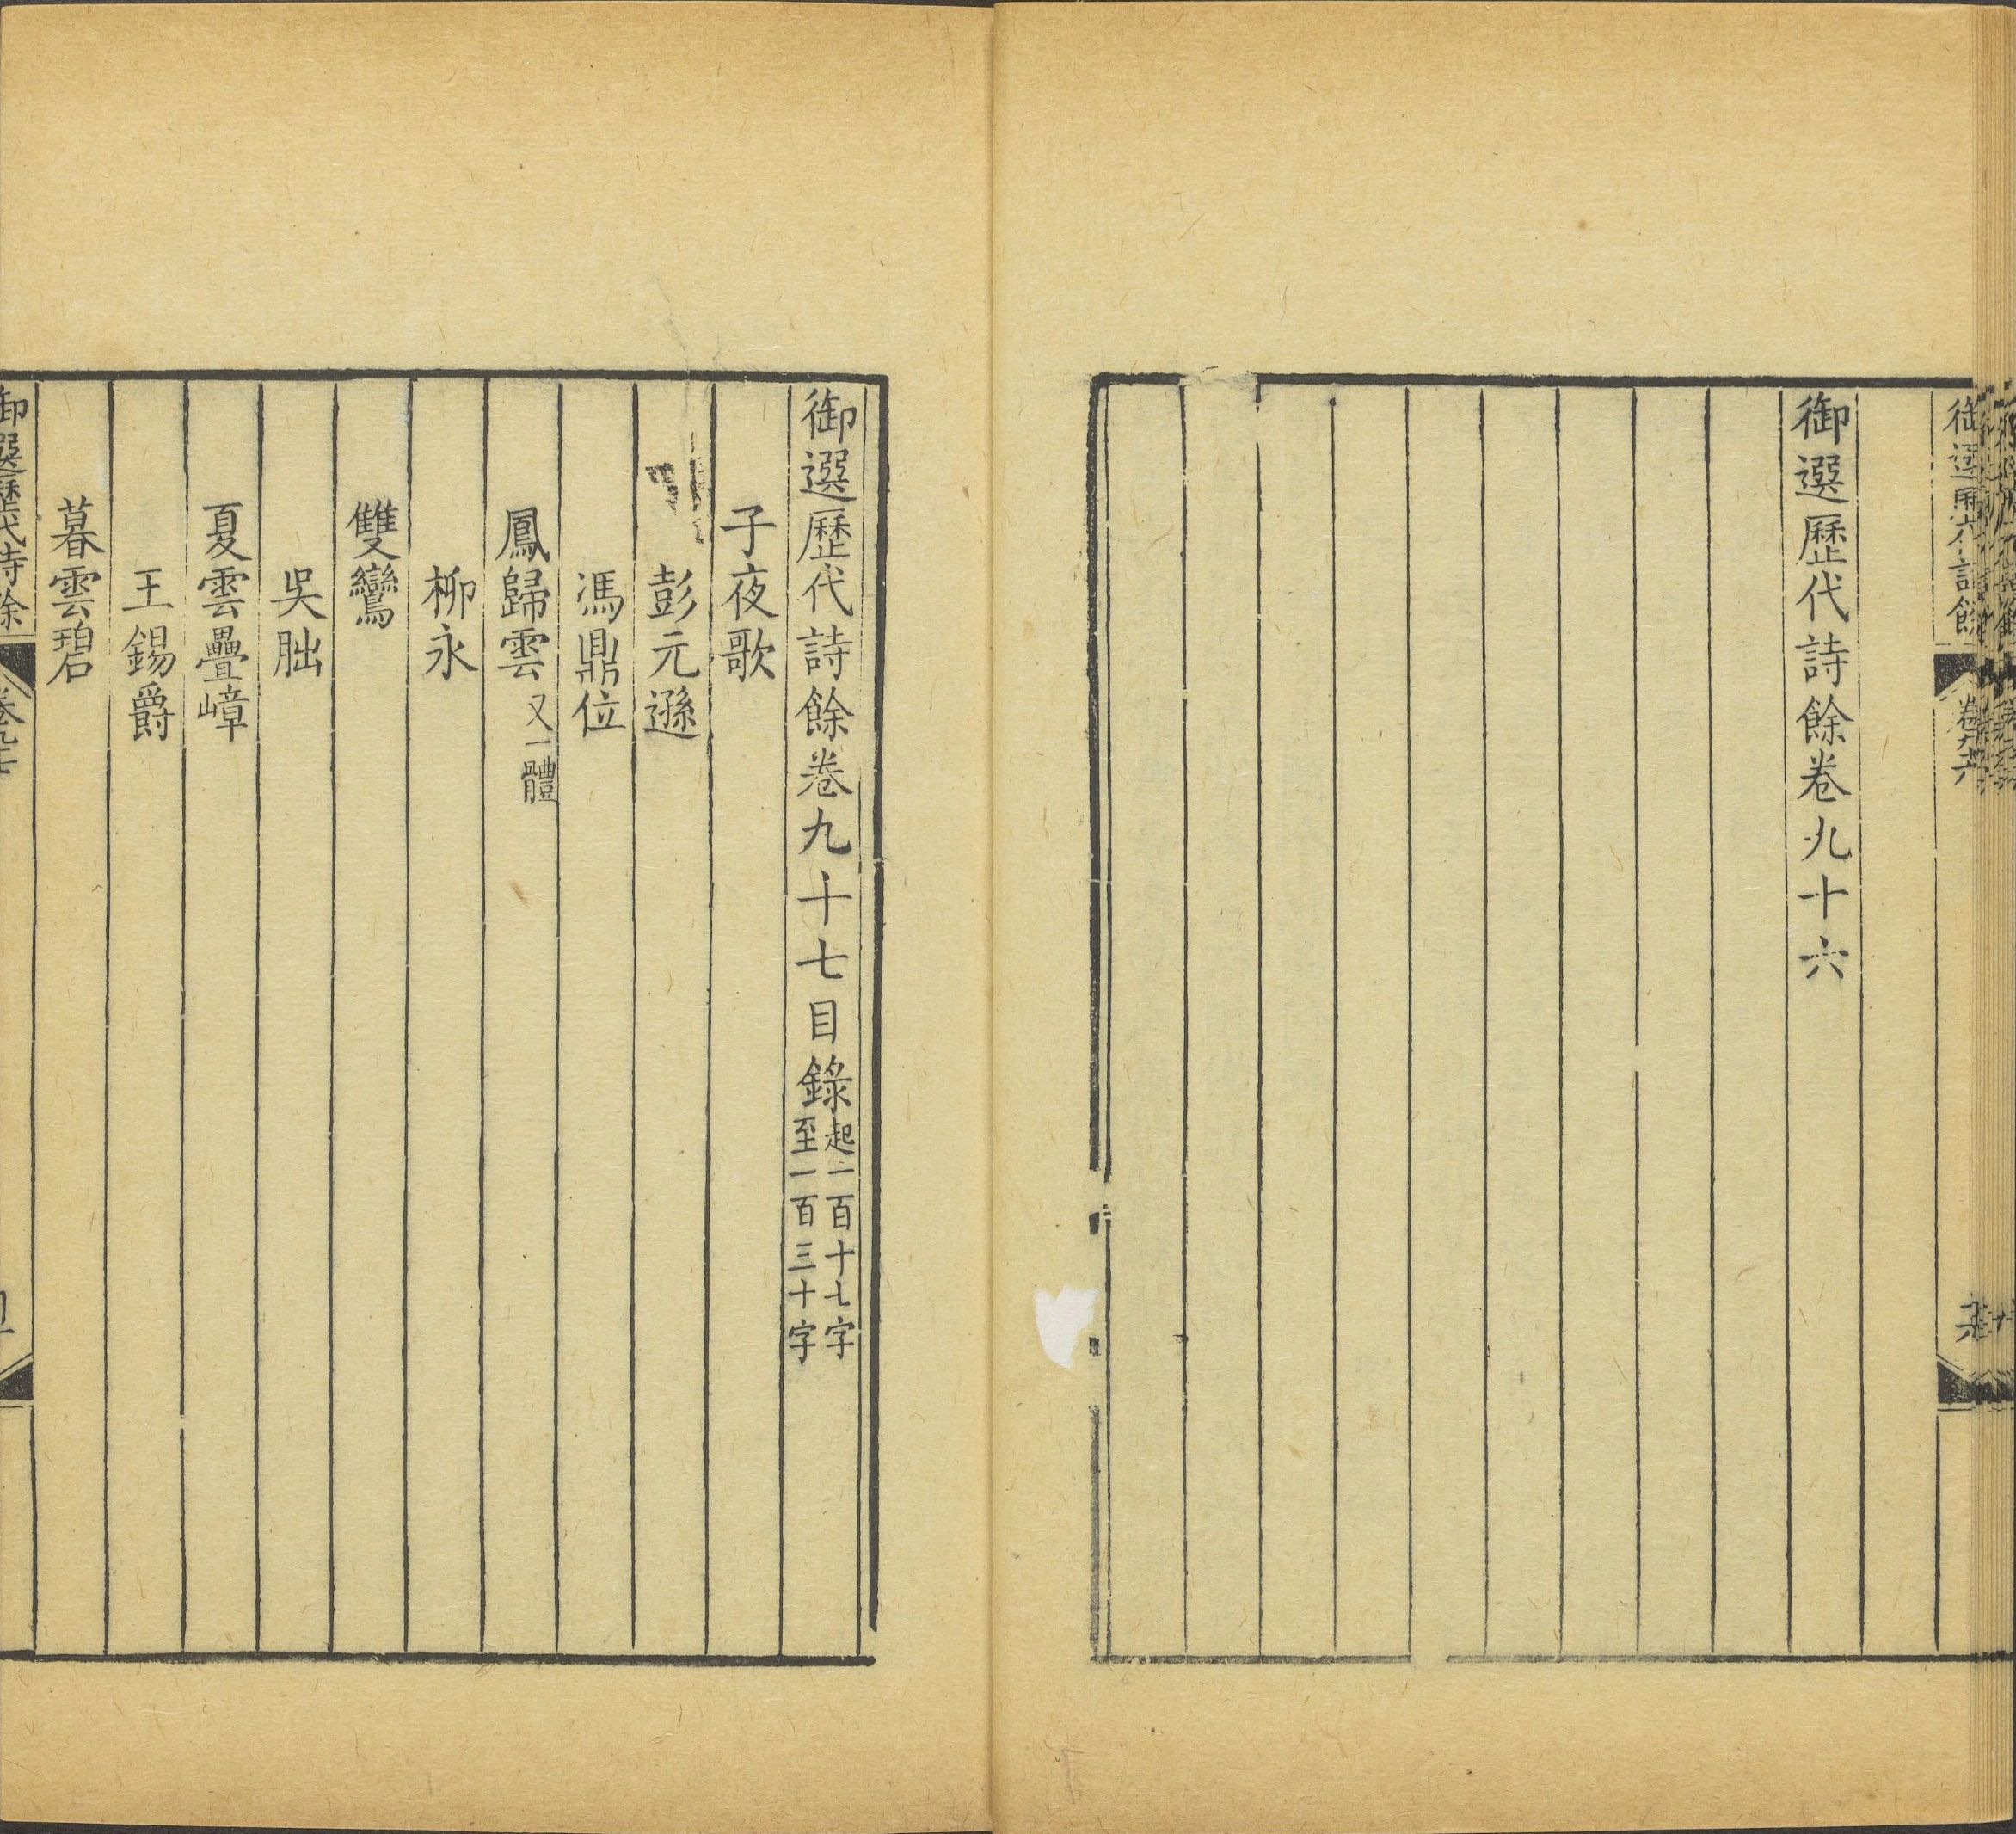 御選歷代詩餘卷九十六
御選歷代詩餘卷九十七目錄起一百十七字
至一百三十字
子夜歌
彭元遜
馮鼎位
鳳歸雲又一體
柳永
雙鸞
吳朏
夏雲疊嶂
王錫爵
暮雲碧
御選歷代詩餘
卷九十七